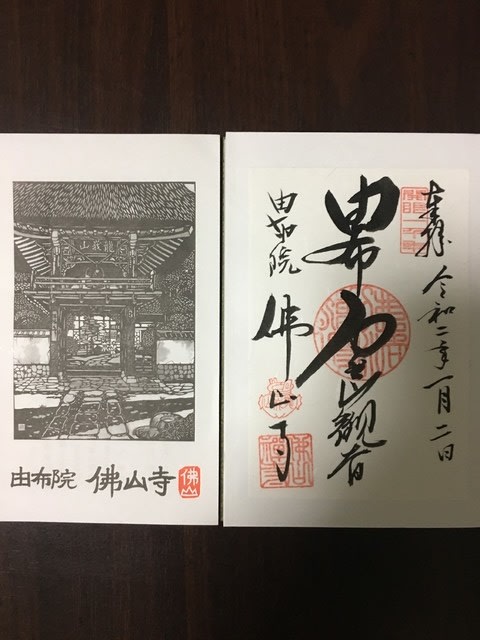 由布院 佛山寺
佛山
奉拝 令和二年一月二日
由布力山観音
由布院 佛山寺